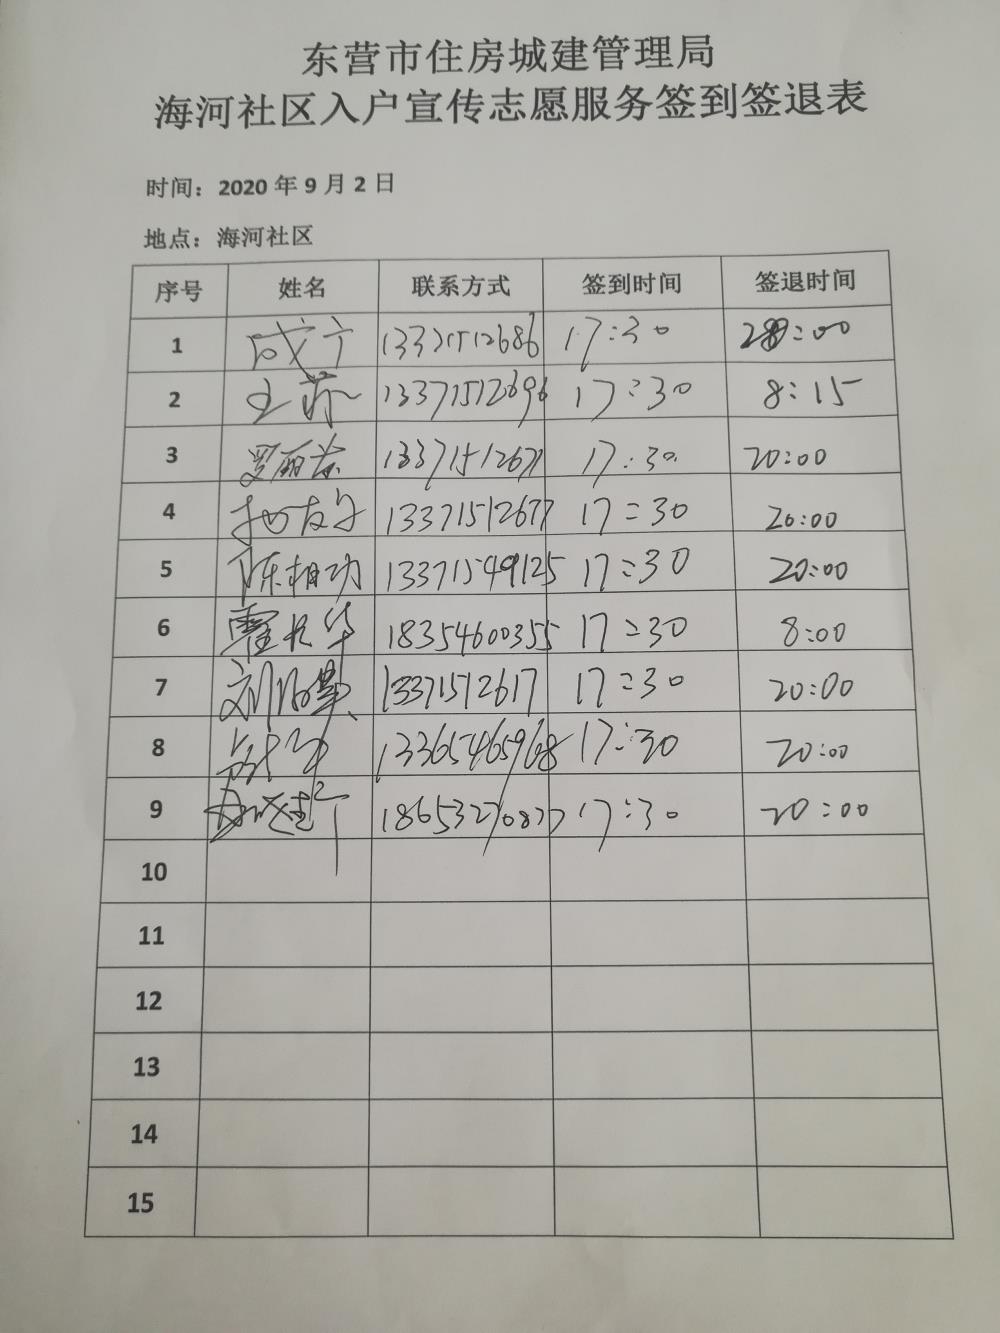 东营市住房城建管理局
海河社区入户宣传志愿服务签到签退表
时间：2020 年 9 月 2 日
地点：海河社区
序号 姓名 联系方式 签到时间 签退时间
1 13371512686 17:30 :00
2 13371512696 17:30 8:15
3 13371512671 17:30 20:00
4 13371512677 17:30 20:00
5 陈相功 13371549125 17:30 20:00
6 霍长华 18354600355 17:30 8:00
7 13371512617 17:30 20:00
8 13365465968 17:30 20:00
9 18653270877 17:30 20:00
10
11
12
13
14
15